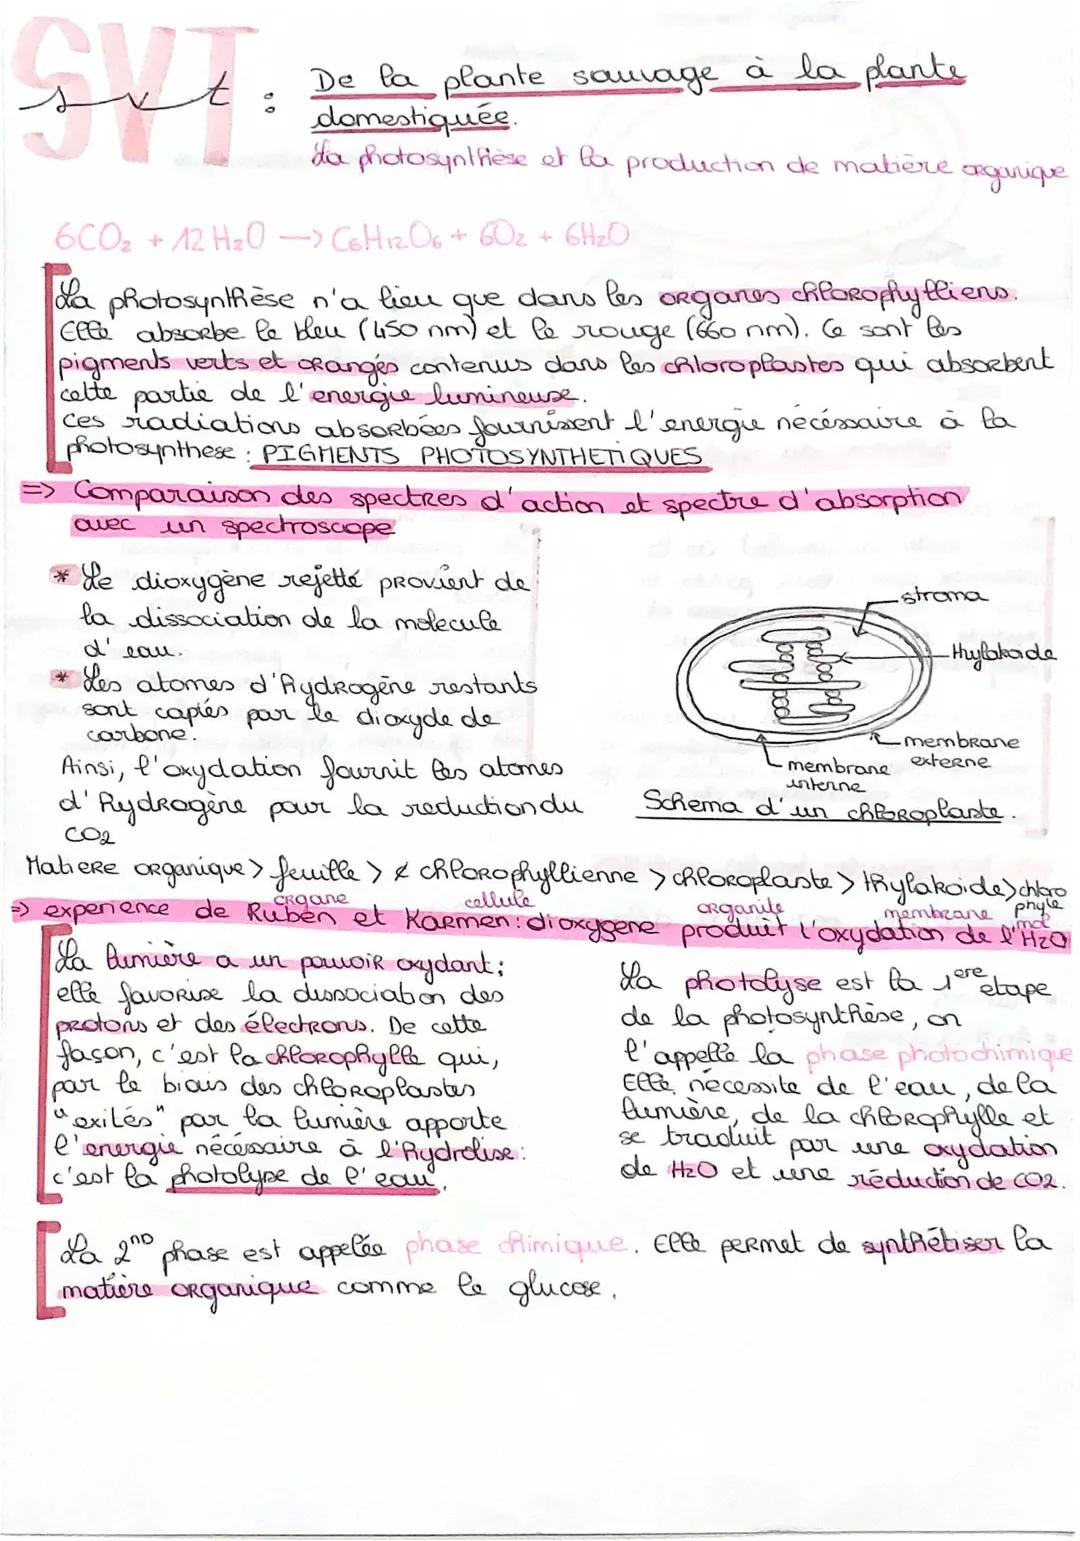 SVT
svt : De la plante sauvage à la plante
domestiquée.
La photosynthèse et la production de matière organique
6CO₂ + 12 H₂O → C₆H₁₂O₆ + 6O₂ + 6H₂O
La photosynthèse n'a lieu que dans les organes chlorophylliens.
Elle absorbe le bleu (450 nm) et le rouge (660 nm). Ce sont les
pigments verts et orangés contenus dans les chloroplastes qui absorbent
cette partie de l'énergie lumineuse.
ces radiations absorbées fournissent l'énergie nécéssaire à la
photosynthese : PIGMENTS PHOTOSYNTHETIQUES
=> Comparaison des spectres d'action et spectre d'absorption
avec un spectroscope
* Le dioxygène rejetté provient de
la dissociation de la molecule
d'eau.
* Les atomes d'hydrogène restants
sont captés par le dioxyde de
carbone.
Ainsi, l'oxydation fournit les atomes
d'hydrogène pour la reduction du
CO₂
stroma
thylakoide
membrane
externe
membrane
interne
Schema d'un chloroplaste.
Matiere organique > feuille > ¢ chlorophyllienne > chloroplaste > thylakoide > chloro
phyle
organe cellule organite membrane mol
=> experience de Ruben et Karmen : dioxygene produit l'oxydation de l'H₂O
La lumière a un pouvoir oxydant ;
elle favorise la dissociation des
protons et des électrons. De cette
façon, c'est la chlorophylle qui,
par le biais des chloroplastes
"exités" par la lumière apporte
l'energie nécéssaire à l'hydrolise :
c'est la photolyse de l'eau.
La photolyse est la 1ere étape
de la photosynthèse, on
l'appelle la phase photochimique
Elle nécessite de l'eau, de la
lumière, de la chlorophylle et
se traduit par une oxydation
de H₂O et une réduction de CO2.
La 2ND phase est appelée phase chimique. Elle permet de synthétiser la
matière organique comme le glucose.